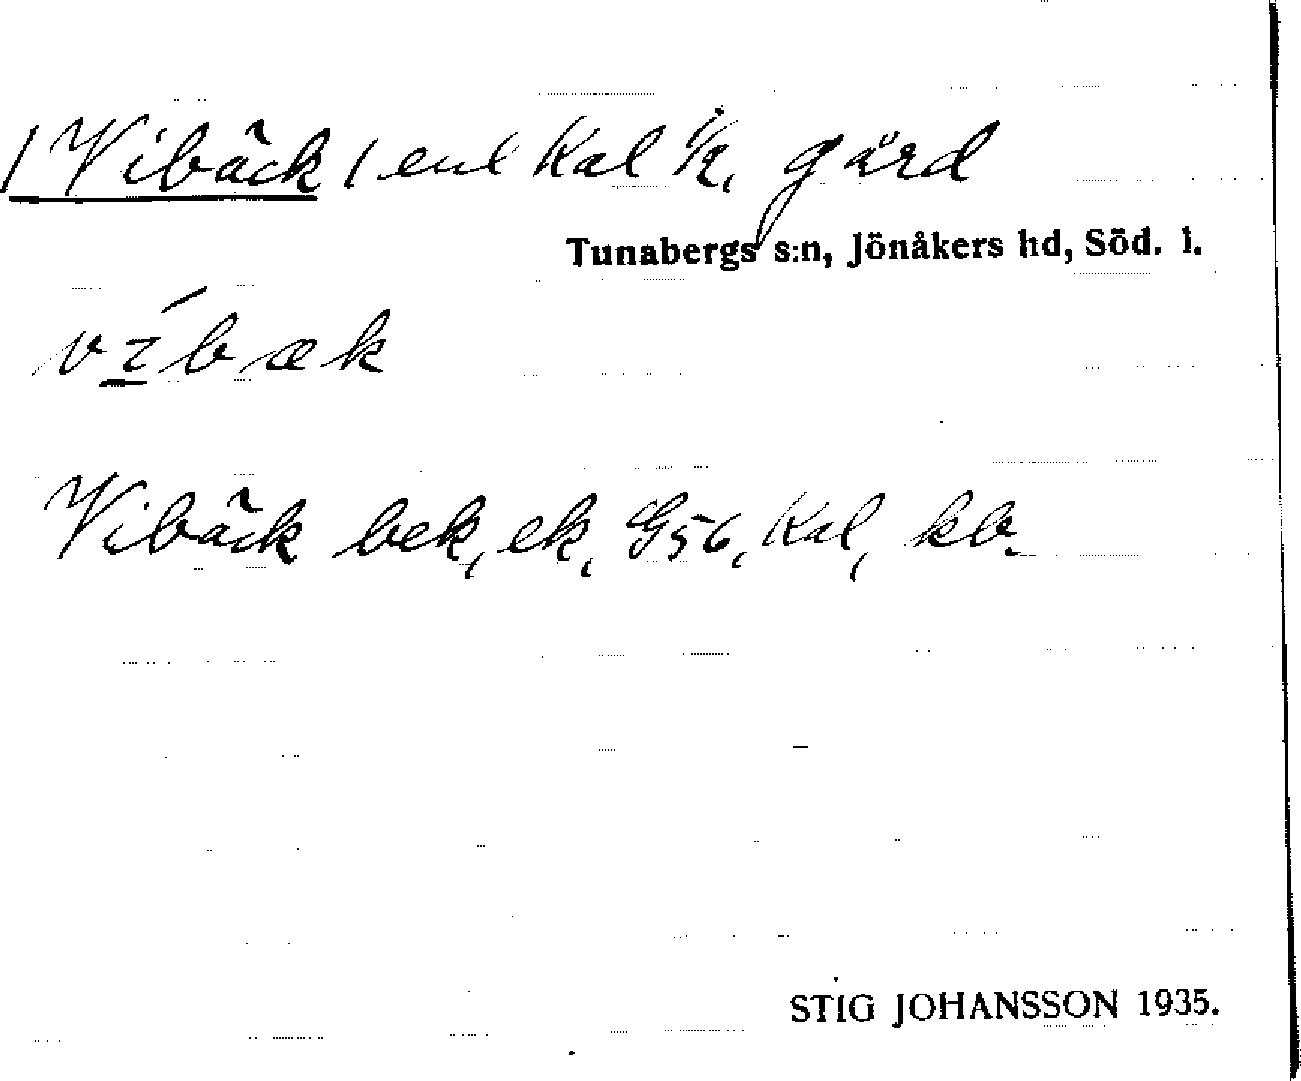 /Vibäck/ enl Kal ½, gård
Tunabergs s:n, Jönåkers hd, Söd. l.
ví̲bæk
Vibäck bek, ek, G56, Kal, kb.
STIG JOHANSSON 1935.